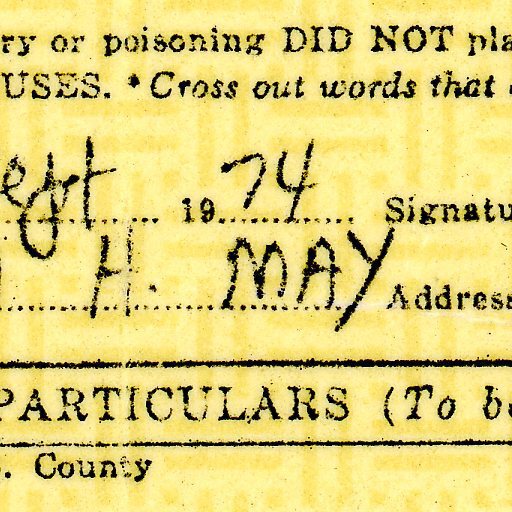 ry or poisoning DID NOT pla
USES. *Cross out words that
ept 1974 Signatu
H. MAY Address
PARTICULARS (To be
. County